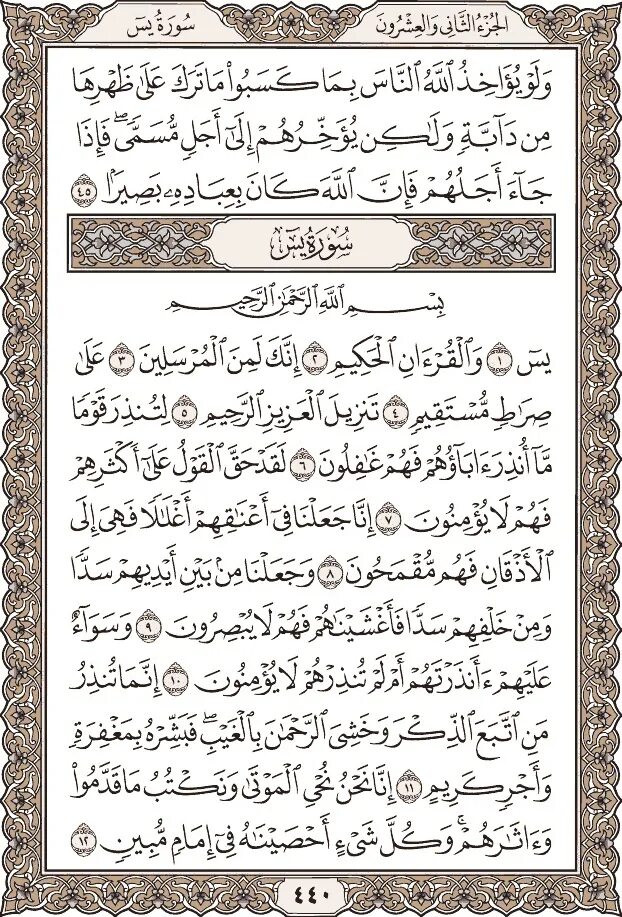 الجزء الثاني والعشرون
سورة يس
وَلَوْ يُؤَاخِذُ ٱللَّهُ ٱلنَّاسَ بِمَا كَسَبُوا۟ مَا تَرَكَ عَلَىٰ ظَهْرِهَا
مِن دَآبَّةٍ وَلَٰكِن يُؤَخِّرُهُمْ إِلَىٰٓ أَجَلٍ مُّسَمًّى ۖ فَإِذَا
جَآءَ أَجَلُهُمْ فَإِنَّ ٱللَّهَ كَانَ بِعِبَادِهِۦ بَصِيرًۢا ٤٥
سُورَةُ يسٓ
بِسْمِ ٱللَّهِ ٱلرَّحْمَٰنِ ٱلرَّحِيمِ
يسٓ ١ وَٱلْقُرْءَانِ ٱلْحَكِيمِ ٢ إِنَّكَ لَمِنَ ٱلْمُرْسَلِينَ ٣ عَلَىٰ
صِرَٰطٍ مُّسْتَقِيمٍ ٤ تَنزِيلَ ٱلْعَزِيزِ ٱلرَّحِيمِ ٥ لِتُنذِرَ قَوْمًا
مَّآ أُنذِرَ ءَابَآؤُهُمْ فَهُمْ غَٰفِلُونَ ٦ لَقَدْ حَقَّ ٱلْقَوْلُ عَلَىٰٓ أَكْثَرِهِمْ
فَهُمْ لَا يُؤْمِنُونَ ٧ إِنَّا جَعَلْنَا فِىٓ أَعْنَٰقِهِمْ أَغْلَٰلًا فَهِىَ إِلَى
ٱلْأَذْقَانِ فَهُم مُّقْمَحُونَ ٨ وَجَعَلْنَا مِنۢ بَيْنِ أَيْدِيهِمْ سَدًّا
وَمِنْ خَلْفِهِمْ سَدًّا فَأَغْشَيْنَٰهُمْ فَهُمْ لَا يُبْصِرُونَ ٩ وَسَوَآءٌ
عَلَيْهِمْ ءَأَنذَرْتَهُمْ أَمْ لَمْ تُنذِرْهُمْ لَا يُؤْمِنُونَ ١٠ إِنَّمَا تُنذِرُ
مَنِ ٱتَّبَعَ ٱلذِّكْرَ وَخَشِىَ ٱلرَّحْمَٰنَ بِٱلْغَيْبِ ۖ فَبَشِّرْهُ بِمَغْفِرَةٍ
وَأَجْرٍ كَرِيمٍ ١١ إِنَّا نَحْنُ نُحْىِ ٱلْمَوْتَىٰ وَنَكْتُبُ مَا قَدَّمُوا۟
وَءَاثَٰرَهُمْ ۚ وَكُلَّ شَىْءٍ أَحْصَيْنَٰهُ فِىٓ إِمَامٍ مُّبِينٍ ١٢
٤٤٠